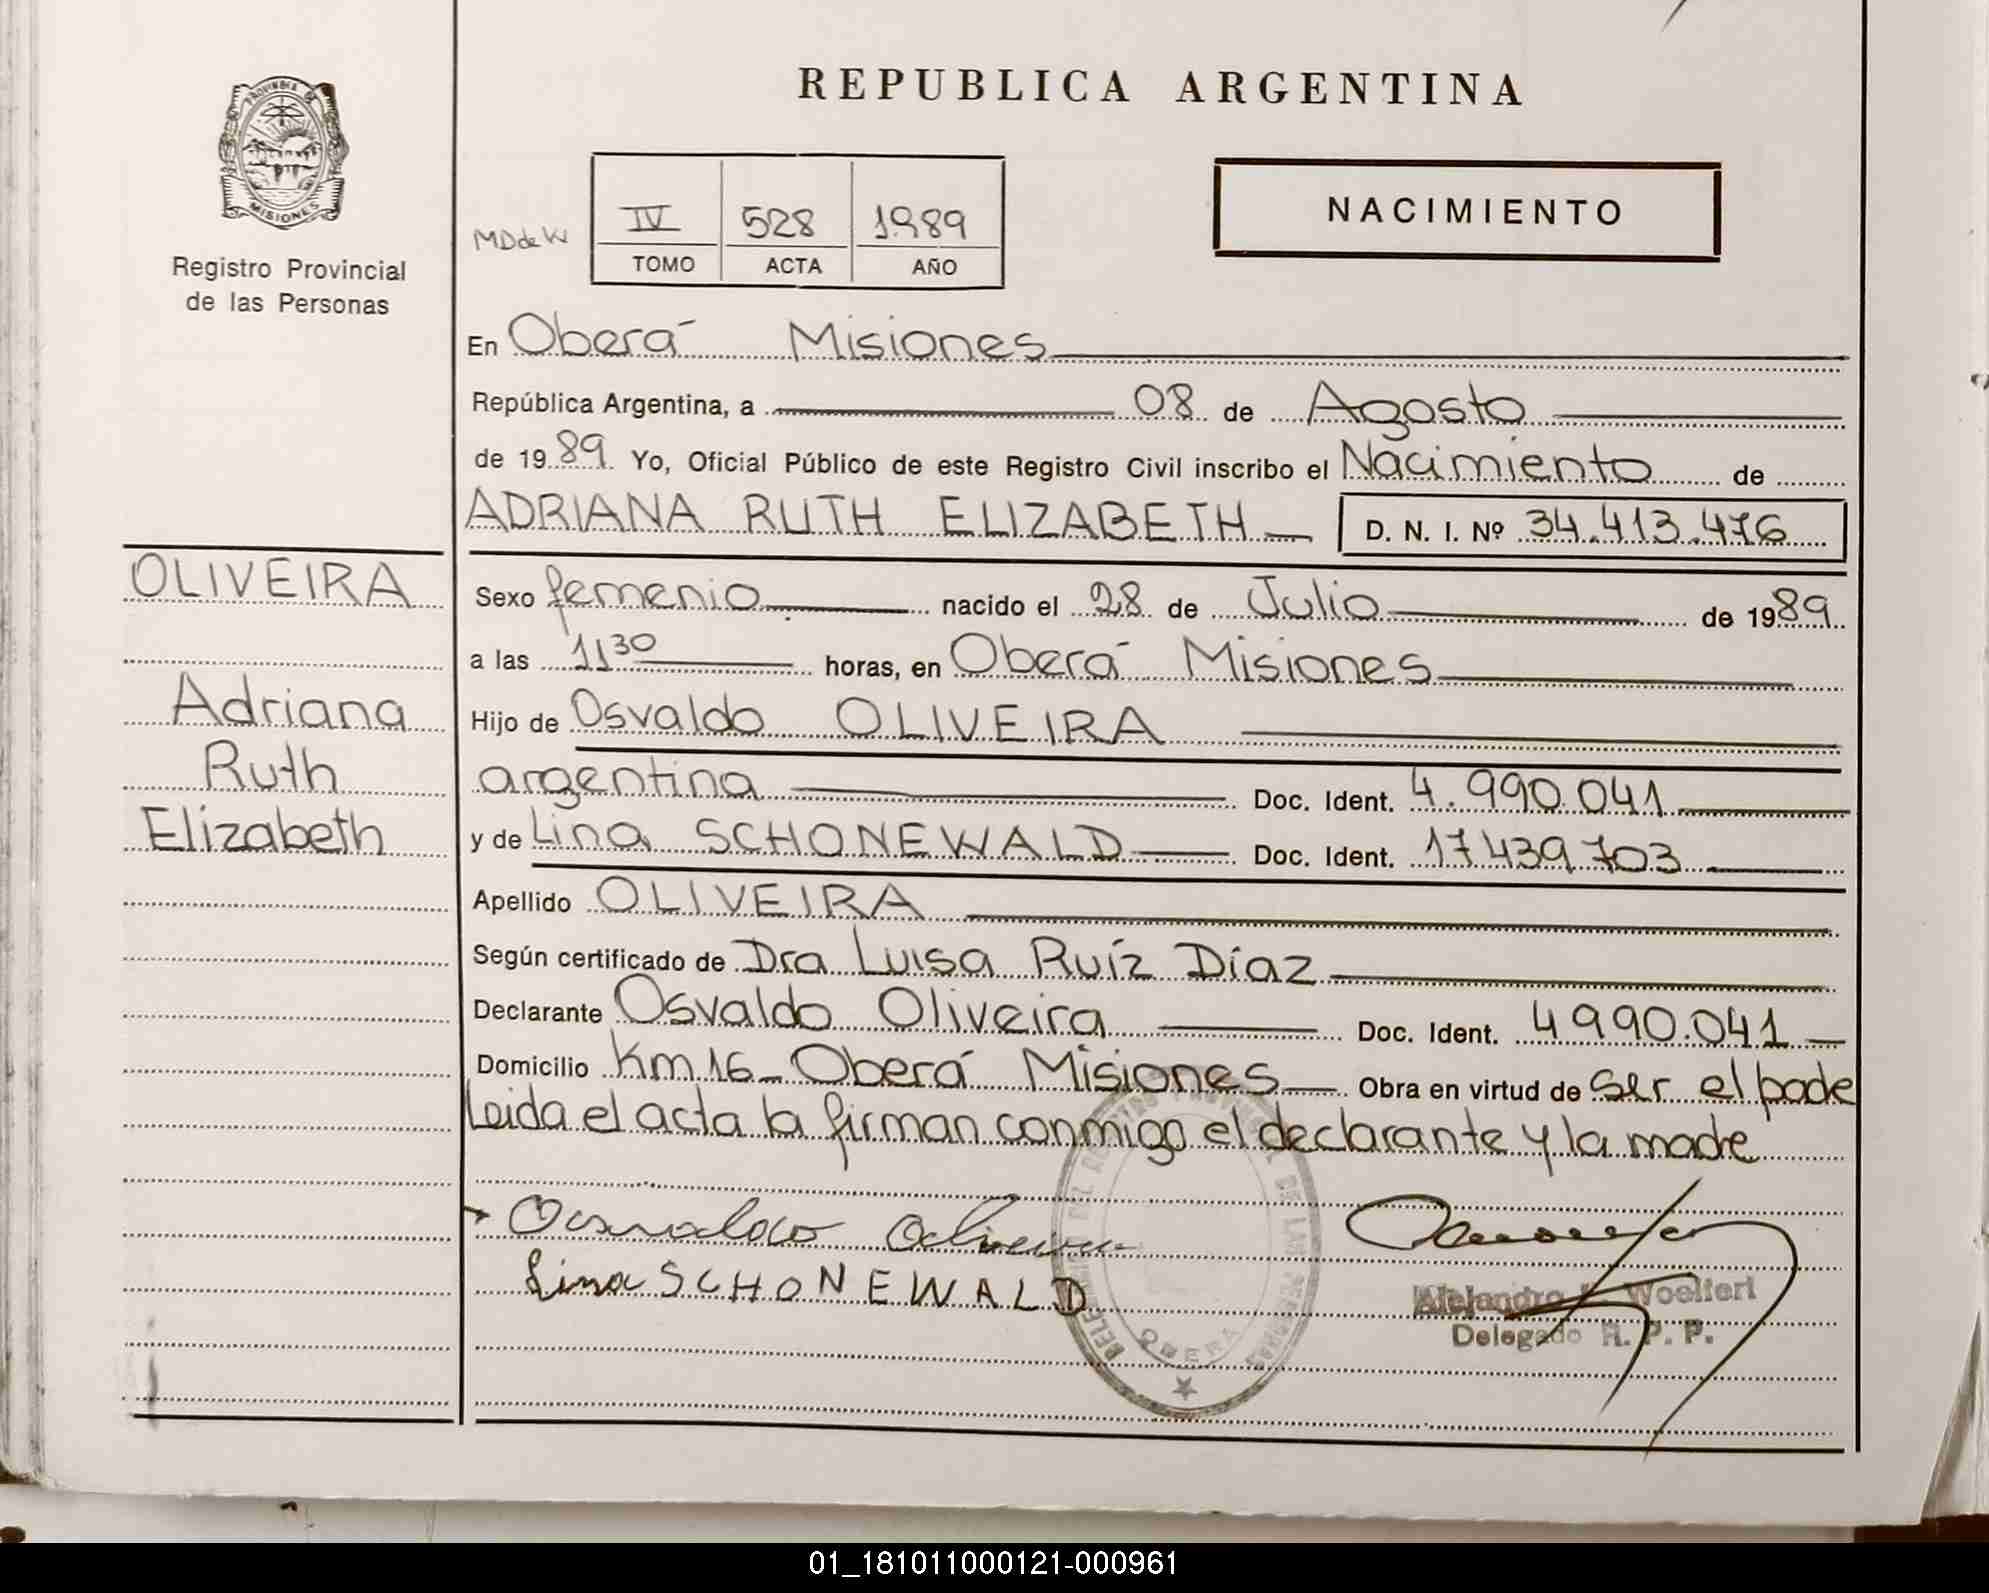 PROVINCIA DE
MISIONES
Registro Provincial
de las Personas
REPUBLICA ARGENTINA
NACIMIENTO
MD de W
IV 528 1989
TOMO ACTA AÑO
En Oberá Misiones
República Argentina, a 08 de Agosto
de 1989 Yo, Oficial Público de este Registro Civil inscribo el Nacimiento de
ADRIANA RUTH ELIZABETH D. N. I. Nº 34.413.476
OLIVEIRA
Adriana
Ruth
Elizabeth
Sexo femenio nacido el 28 de Julio de 1989
a las 11 30 horas, en Oberá Misiones
Hijo de Osvaldo OLIVEIRA
argentina Doc. Ident. 4.990.041
y de Lina SCHONEWALD Doc. Ident. 17439.703
Apellido OLIVEIRA
Según certificado de Dra Luisa Ruíz Díaz
Declarante Osvaldo Oliveira Doc. Ident. 4990.041
Domicilio Km 16 - Oberá Misiones Obra en virtud de ser el padre
Leida el acta la firman conmigo el declarante y la madre
Osvaldo Oliveira
Lina SCHONEWALD
DEL REGISTRO DE LAS PERSONAS
OBERA
Alejandro Woelfert
Delegado R. P. P.
01_181011000121-000961